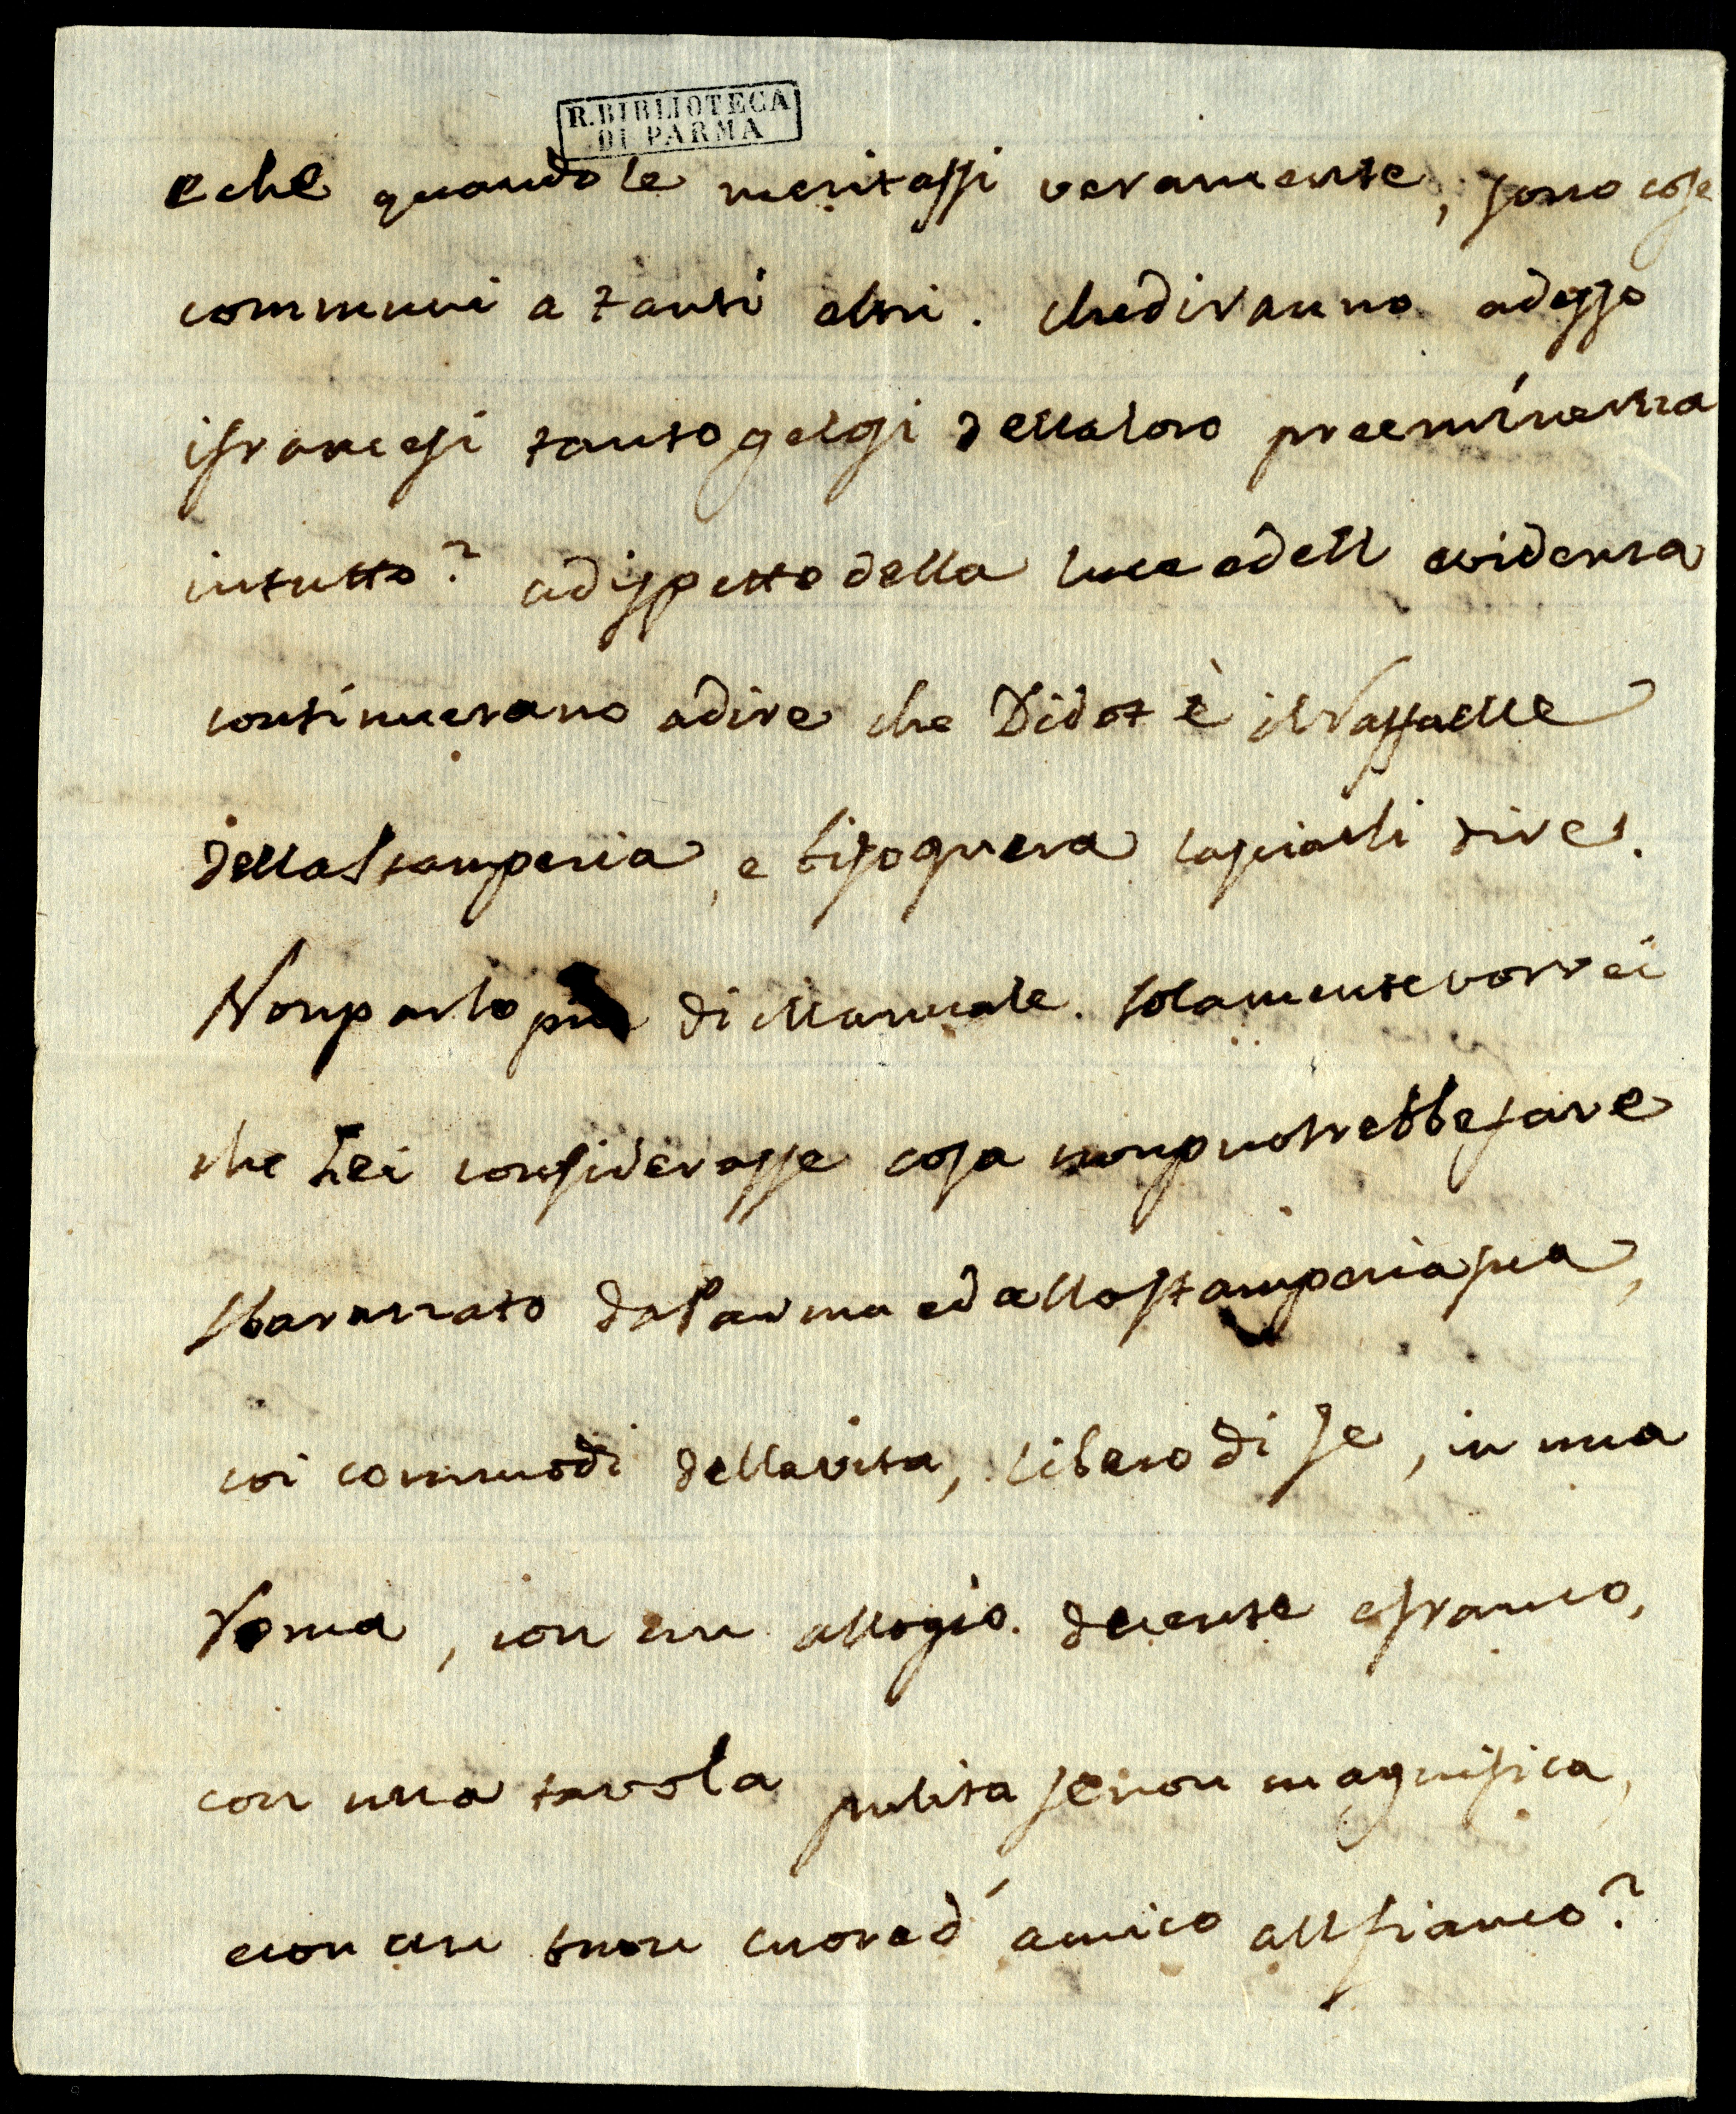 R. BIBLIOTECA
DI PARMA
e che quando le meritassi veramente, sono cose
communi a tanti altri. che diranno adesso
i francesi tanto gelosi della loro preeminenza
in tutto? a dispetto della luce e dell evidenza
continuerano a dire che Didot è il Raffaelle
della Stamperia, e bisognera lasciarli dire.
Non parlo più di Manuale. solamente vorrei
che Lei considerasse cosa non puotrebbe fare
sbarazzato da Parma e dalla stamperia sua,
coi commodi della vita, libero di se, in una
Roma, con un allogio decente e franco,
con una tavola pulita se non magnifica,
e con un buon cuore d'amico all fianco?